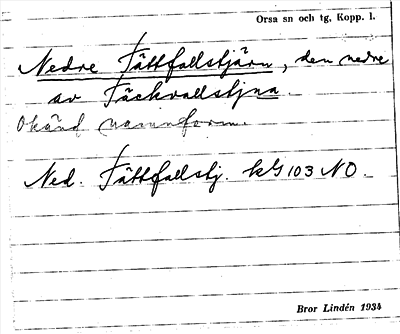 Orsa sn och tg, Kopp. l.
Nedre Fättfallstjärn, den nedre
av Fäckvallstjna.
Okänd namnform.
Ned. Fättfallstj. kG 103 NO.
Bror Lindén 1934